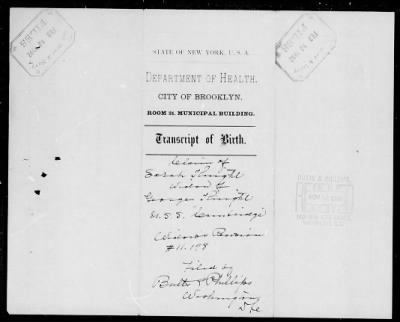 STATE OF NEW YORK, U. S. A.
DEPARTMENT OF HEALTH.
CITY OF BROOKLYN.
ROOM 21, MUNICIPAL BUILDING.
Transcript of Birth.
Claim of
Sarah Knight
Widow of
George Knight
U.S.S. Cambridge
Widows Pension
#11.198
Filed by
Butts & Phillips
Washington
D.C.